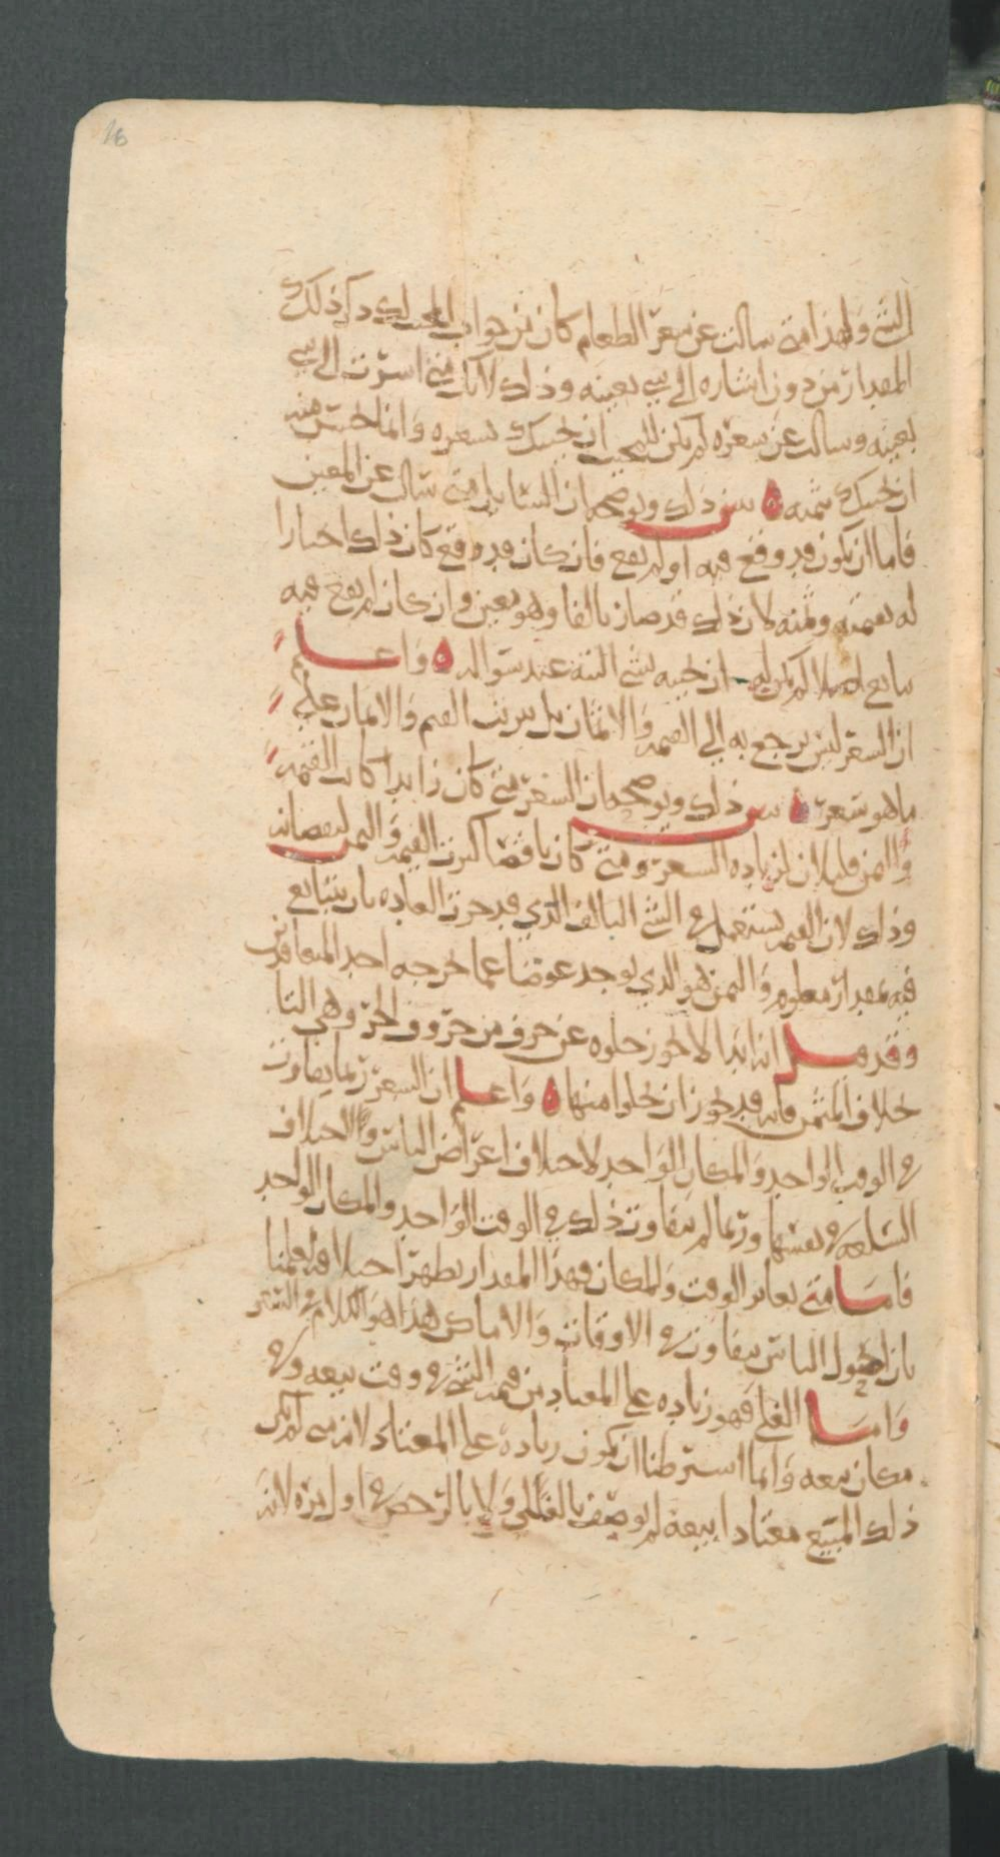 16
الشي ولهذا متى سالت عن سعر الطعام كان من جواب المجيب لك ذكر ذلك
المقدار من دون اشاره الى شي بعينه وذلك لانك متى اشرت الى شي
بعينه وسالت عن سعره لم يكن للمجيب ان يجيبك بسعره وانما يحسن منه
ان يجيبك بثمنه ه يبين ذلك ويوضحه ان السايل متى سال عن المعين
فاما ان يكون قد وقع فيه او لم يقع فان كان قد وقع كان ذلك اخبارا
له بقيمته وثمنه لان ذلك قد صار تالفا وهو معين وان كان لم يقع فيه
بايع اصلا لم يكن له ان يجيبه بشي البتة عند سواله ه واعلم
ان السعر ليس يرجع به الى القيمه والاثمان بل يترتب القيم والاثمان على
ما هو سعر ه يبين ذلك ويوضحه ان السعر متى كان زايدا كانت القيمه
والثمن قليلان لزياده السعر ومتى كان ناقصا كثرت القيمه والثمن لنقصانه
وذلك لان القيم يستعمل في الشي التالف الذي قد جرت العاده بان يتبايع
فيه بمقدار معلوم والثمن هو الذي يوجد عوضا عما اخرجه احد المتعاقدين
وقد قيل انه ابدا لا يجوز خلوه عن حرف من حروف الجر وهي البا
خلاف المثمن فانه قد يجوز ان يخلوا منها ه واعلم ان السعر ربما يتفاوت
في الوقت الواحد والمكان الواحد لاختلاف اغراض الناس والاختلاف
السلعه في نفسها وربما لم يتفاوت ذلك في الوقت الواحد والمكان الواحد
فاما متى تغاير الوقت والمكان فهذا المقدار يظهر اختلافه لعلمنا
بان احوال الناس يتفاوت في الاوقات والاماكن هذا هو الكلام في السعر
واما الغلى فهو زياده على المعتاد من قيمه الشي في وقت بيعه وفي
مكان بيعه وانما اشترطنا ان يكون زياده على المعتاد لانه متى لم يكن
ذلك المبيع معتادا بيعه لم يوصف بالغلى ولا بالرخص في اول مره لانه